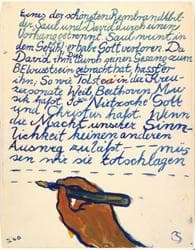 Eines der schönsten Rembrandtbil
der Saul und David durch einen
Vorhang getrennt. Saul weint in
dem Gefühl er habe Gott verloren. Da
David, ihm durch seinen Gesang zum
Bewusstsein gebracht hat, hasst er
ihn. So wie Tolstoi in die Kreu-
zersonate Weib, Beethoven, Mu
sik hasst. So Nietzsche Gott
und Christus hasst. Wenn
die Macht unsrer Sinn
lichkeit keinen anderen
Ausweg zulässt — müs
sen wir sie totschlagen